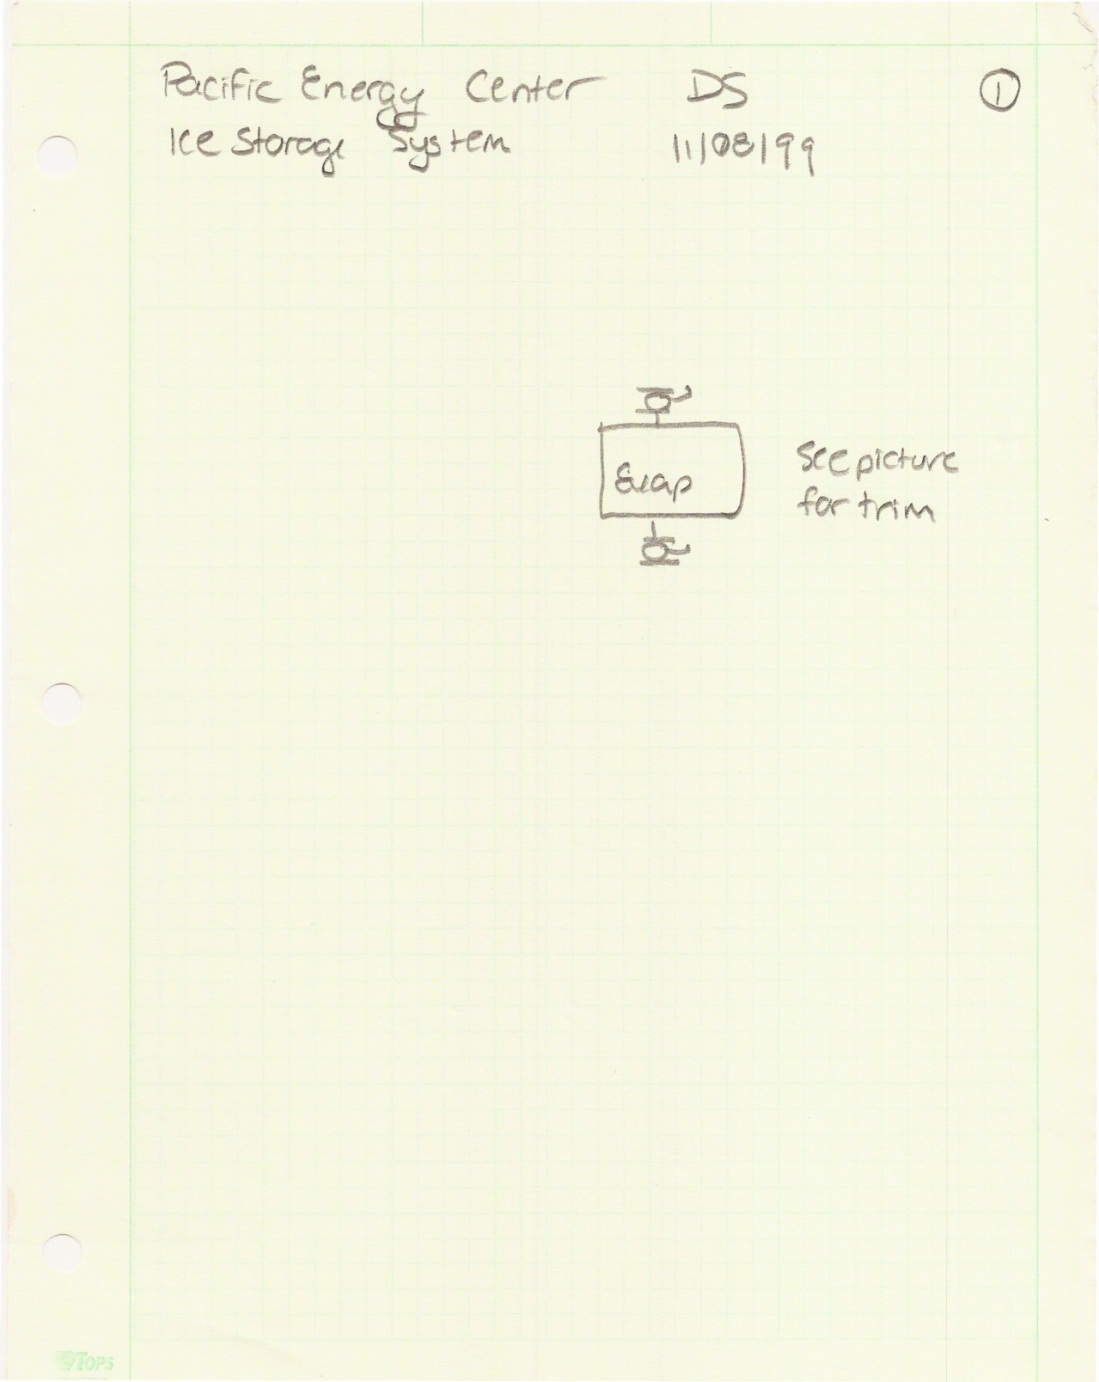 Pacific Energy Center DS 1
Ice Storage System 11/08/99
Evap
See picture
for trim
TOPS